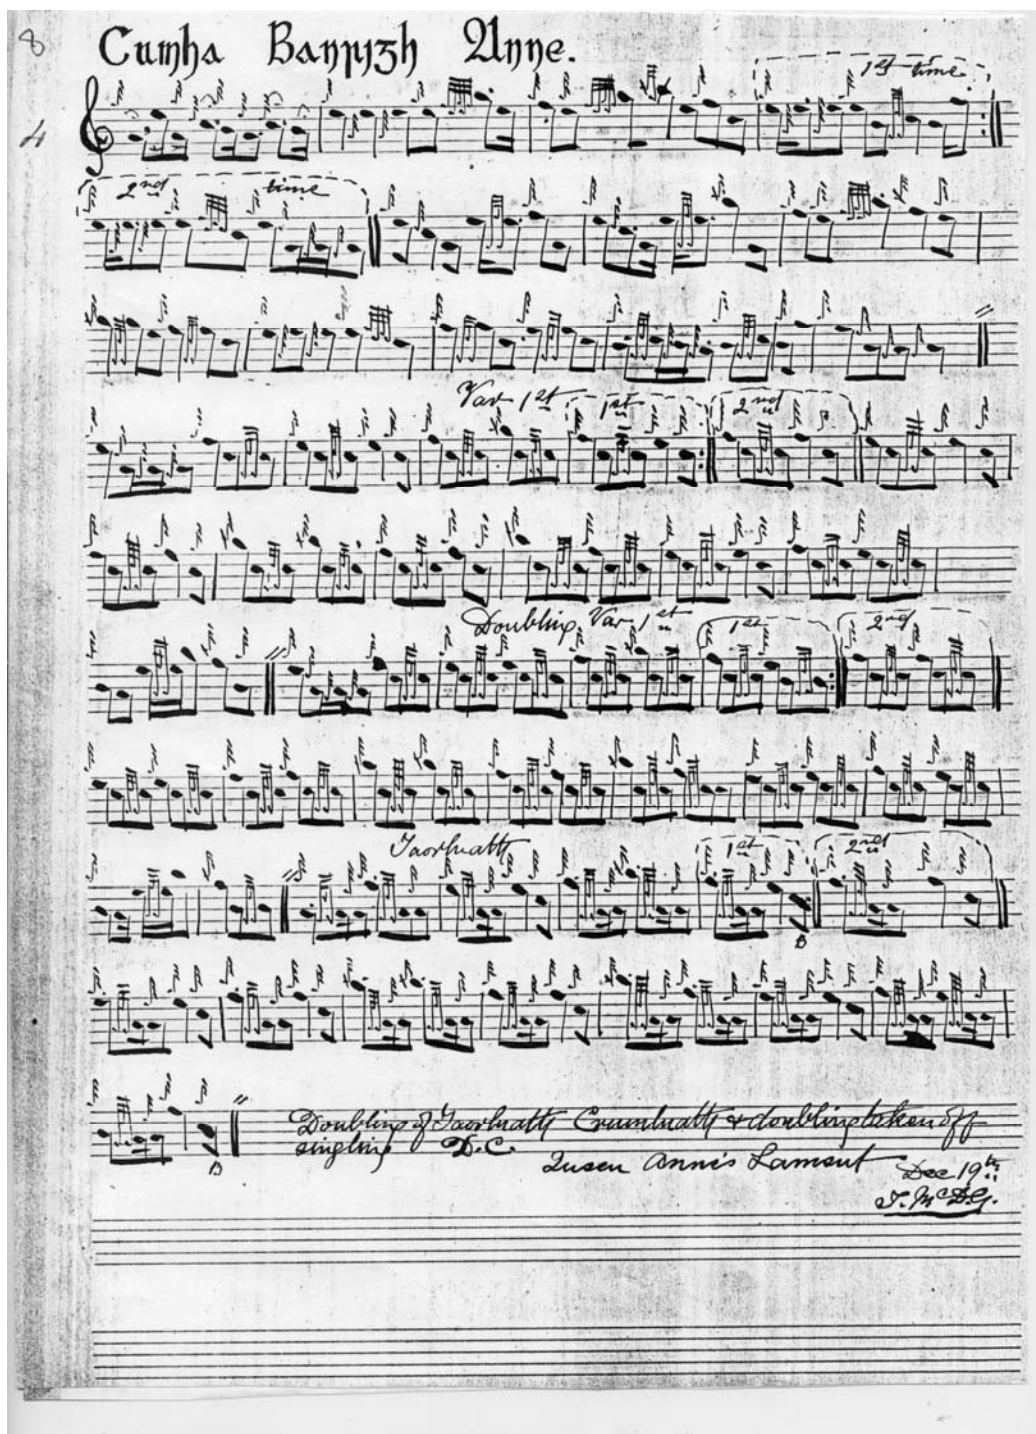 8
Cumha Banrigh Anne.
1st time
4
2nd time
Var 1st 1st 2nd
Doubling Var. 1st 1st 2nd
Taorluath 1st 2nd
B
Doubling of Taorluath Crunluath & doubling taken off
singling D.C.
B
Queen Anne's Lament Dec 19th
J. McD.G.